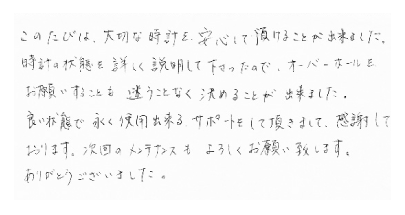 このたびは、大切な時計を、安心して預けることが出来ました。
時計の状態を詳しく説明して下さったので、オーバーホールを
お願いすることも迷うことなく決めることが出来ました。
良い状態で永く使用出来るサポートをして頂きまして、感謝して
おります。次回のメンテナンスもよろしくお願い致します。
ありがとうございました。